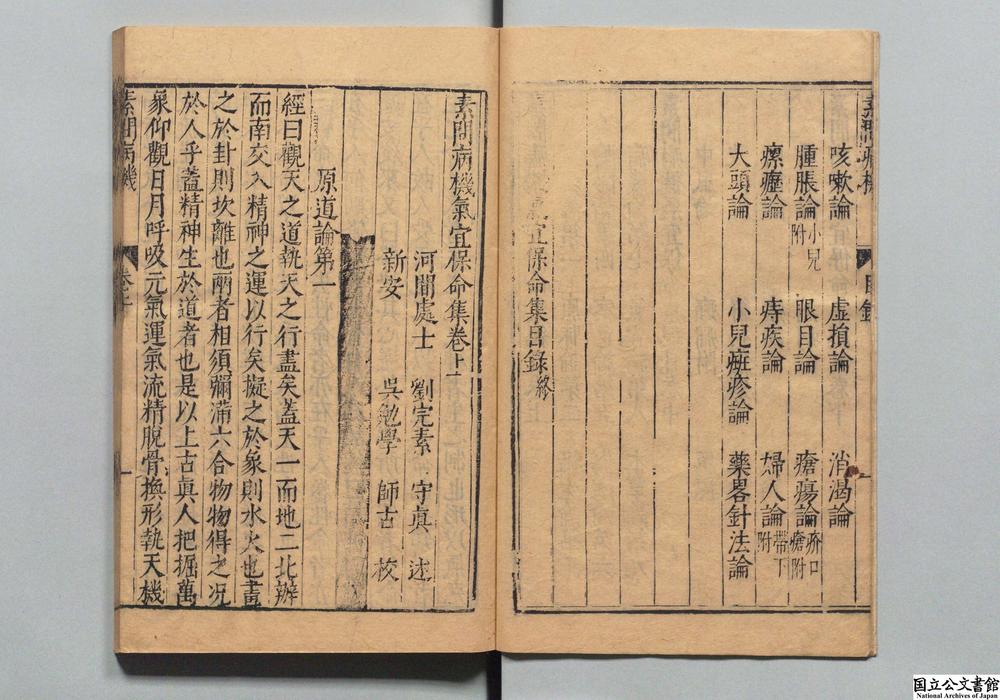 素問病機 目錄
咳嗽論 虛損論 消渴論
腫脹論小兒附 眼目論 瘡瘍論疥口瘡附
瘰癧論 痔疾論 婦人論帶下附
大頭論 小兒癍疹論 藥畧針法論
宜保命集目錄終
素問病機氣宜保命集卷上
河間處士 劉完素 守真 述
新安 吳勉學 師古 校
原道論第一
經曰觀天之道執天之行盡矣蓋天一而地二北辦
而南交入精神之運以行矣擬之於象則水火也畫
之於卦則坎離也兩者相須彌滿六合物物得之况
於人乎蓋精神生於道者也是以上古真人把握萬
象仰觀日月呼吸元氣運氣流精脫骨換形執天機
素問病機 卷上 一
国立公文書館
National Archives of Japan